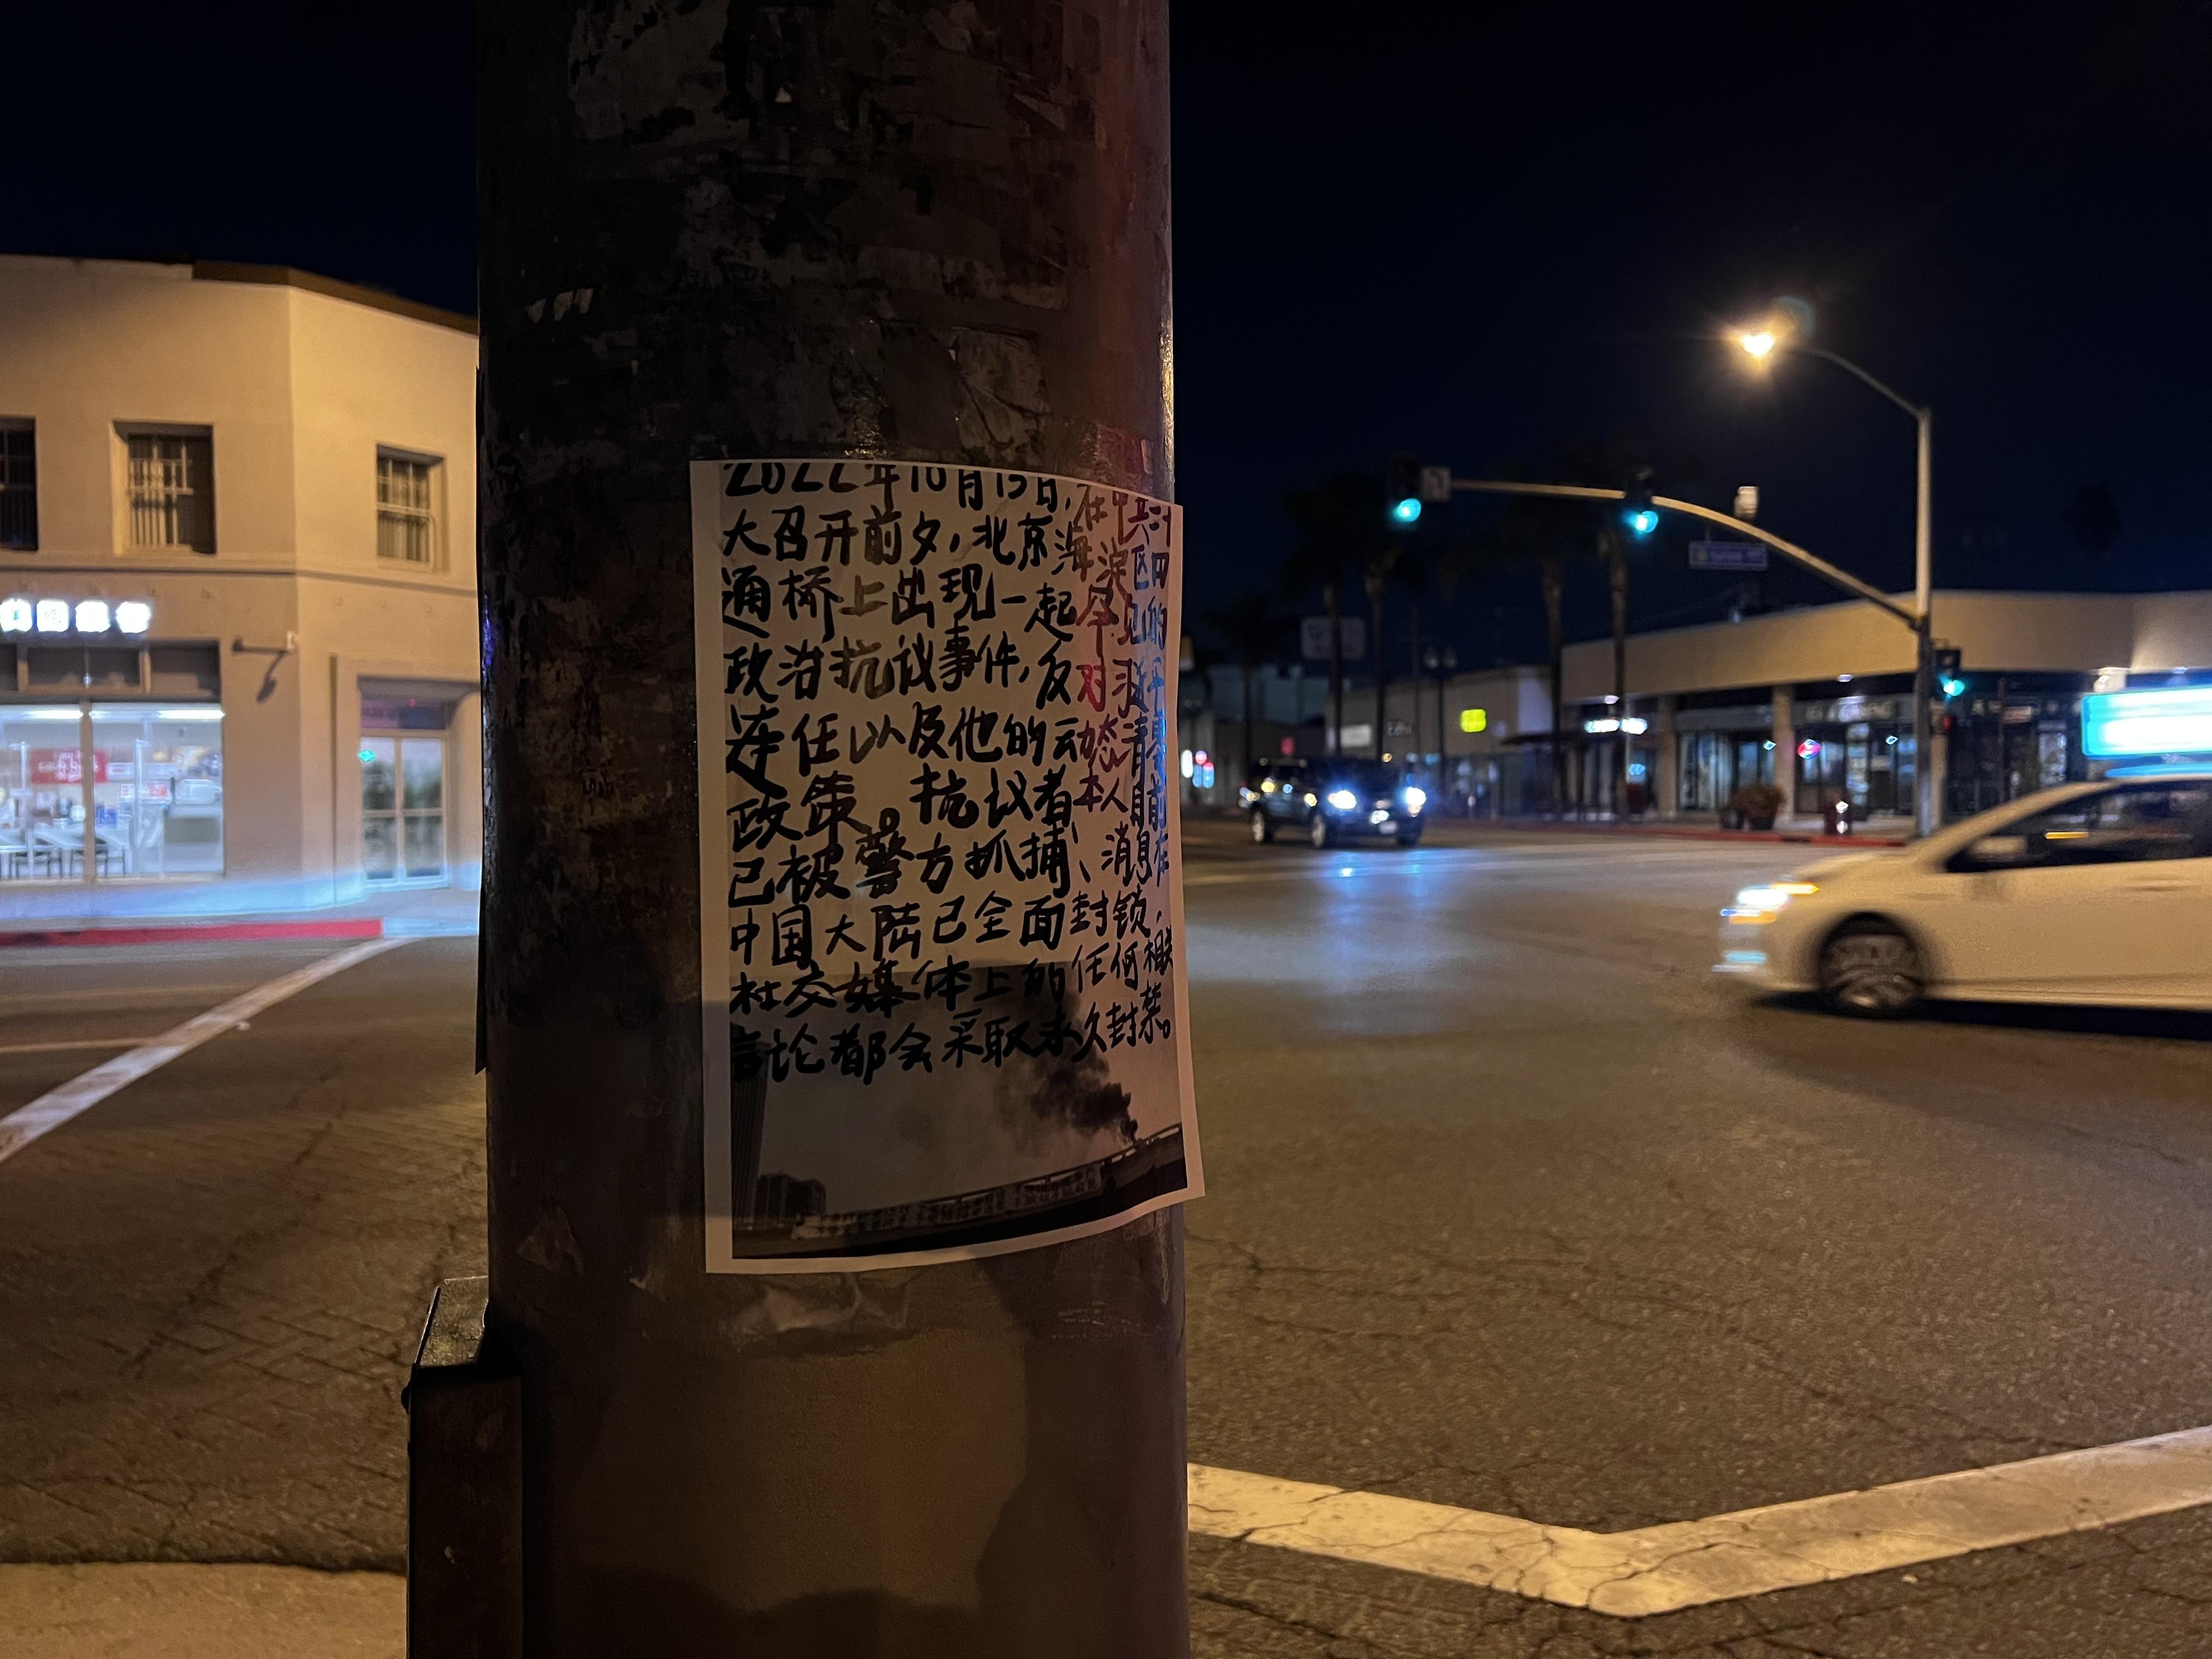 2022年10月13日,在中共二十
大召开前夕,北京海淀区四
通桥上出现一起罕见的
政治抗议事件,反对习近平
连任以及他的动态清零
政策。抗议者本人目前
已被警方抓捕、消息在
中国大陆已全面封锁,
社交媒体上的任何相联
言论都会采取永久封禁。